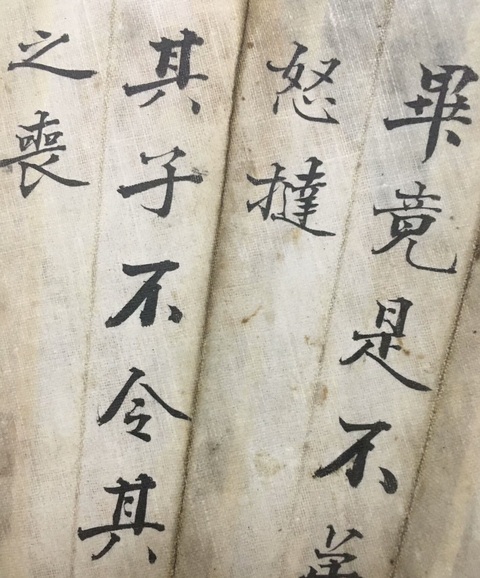 畢竟是不
怒撻
其子不令其
之喪